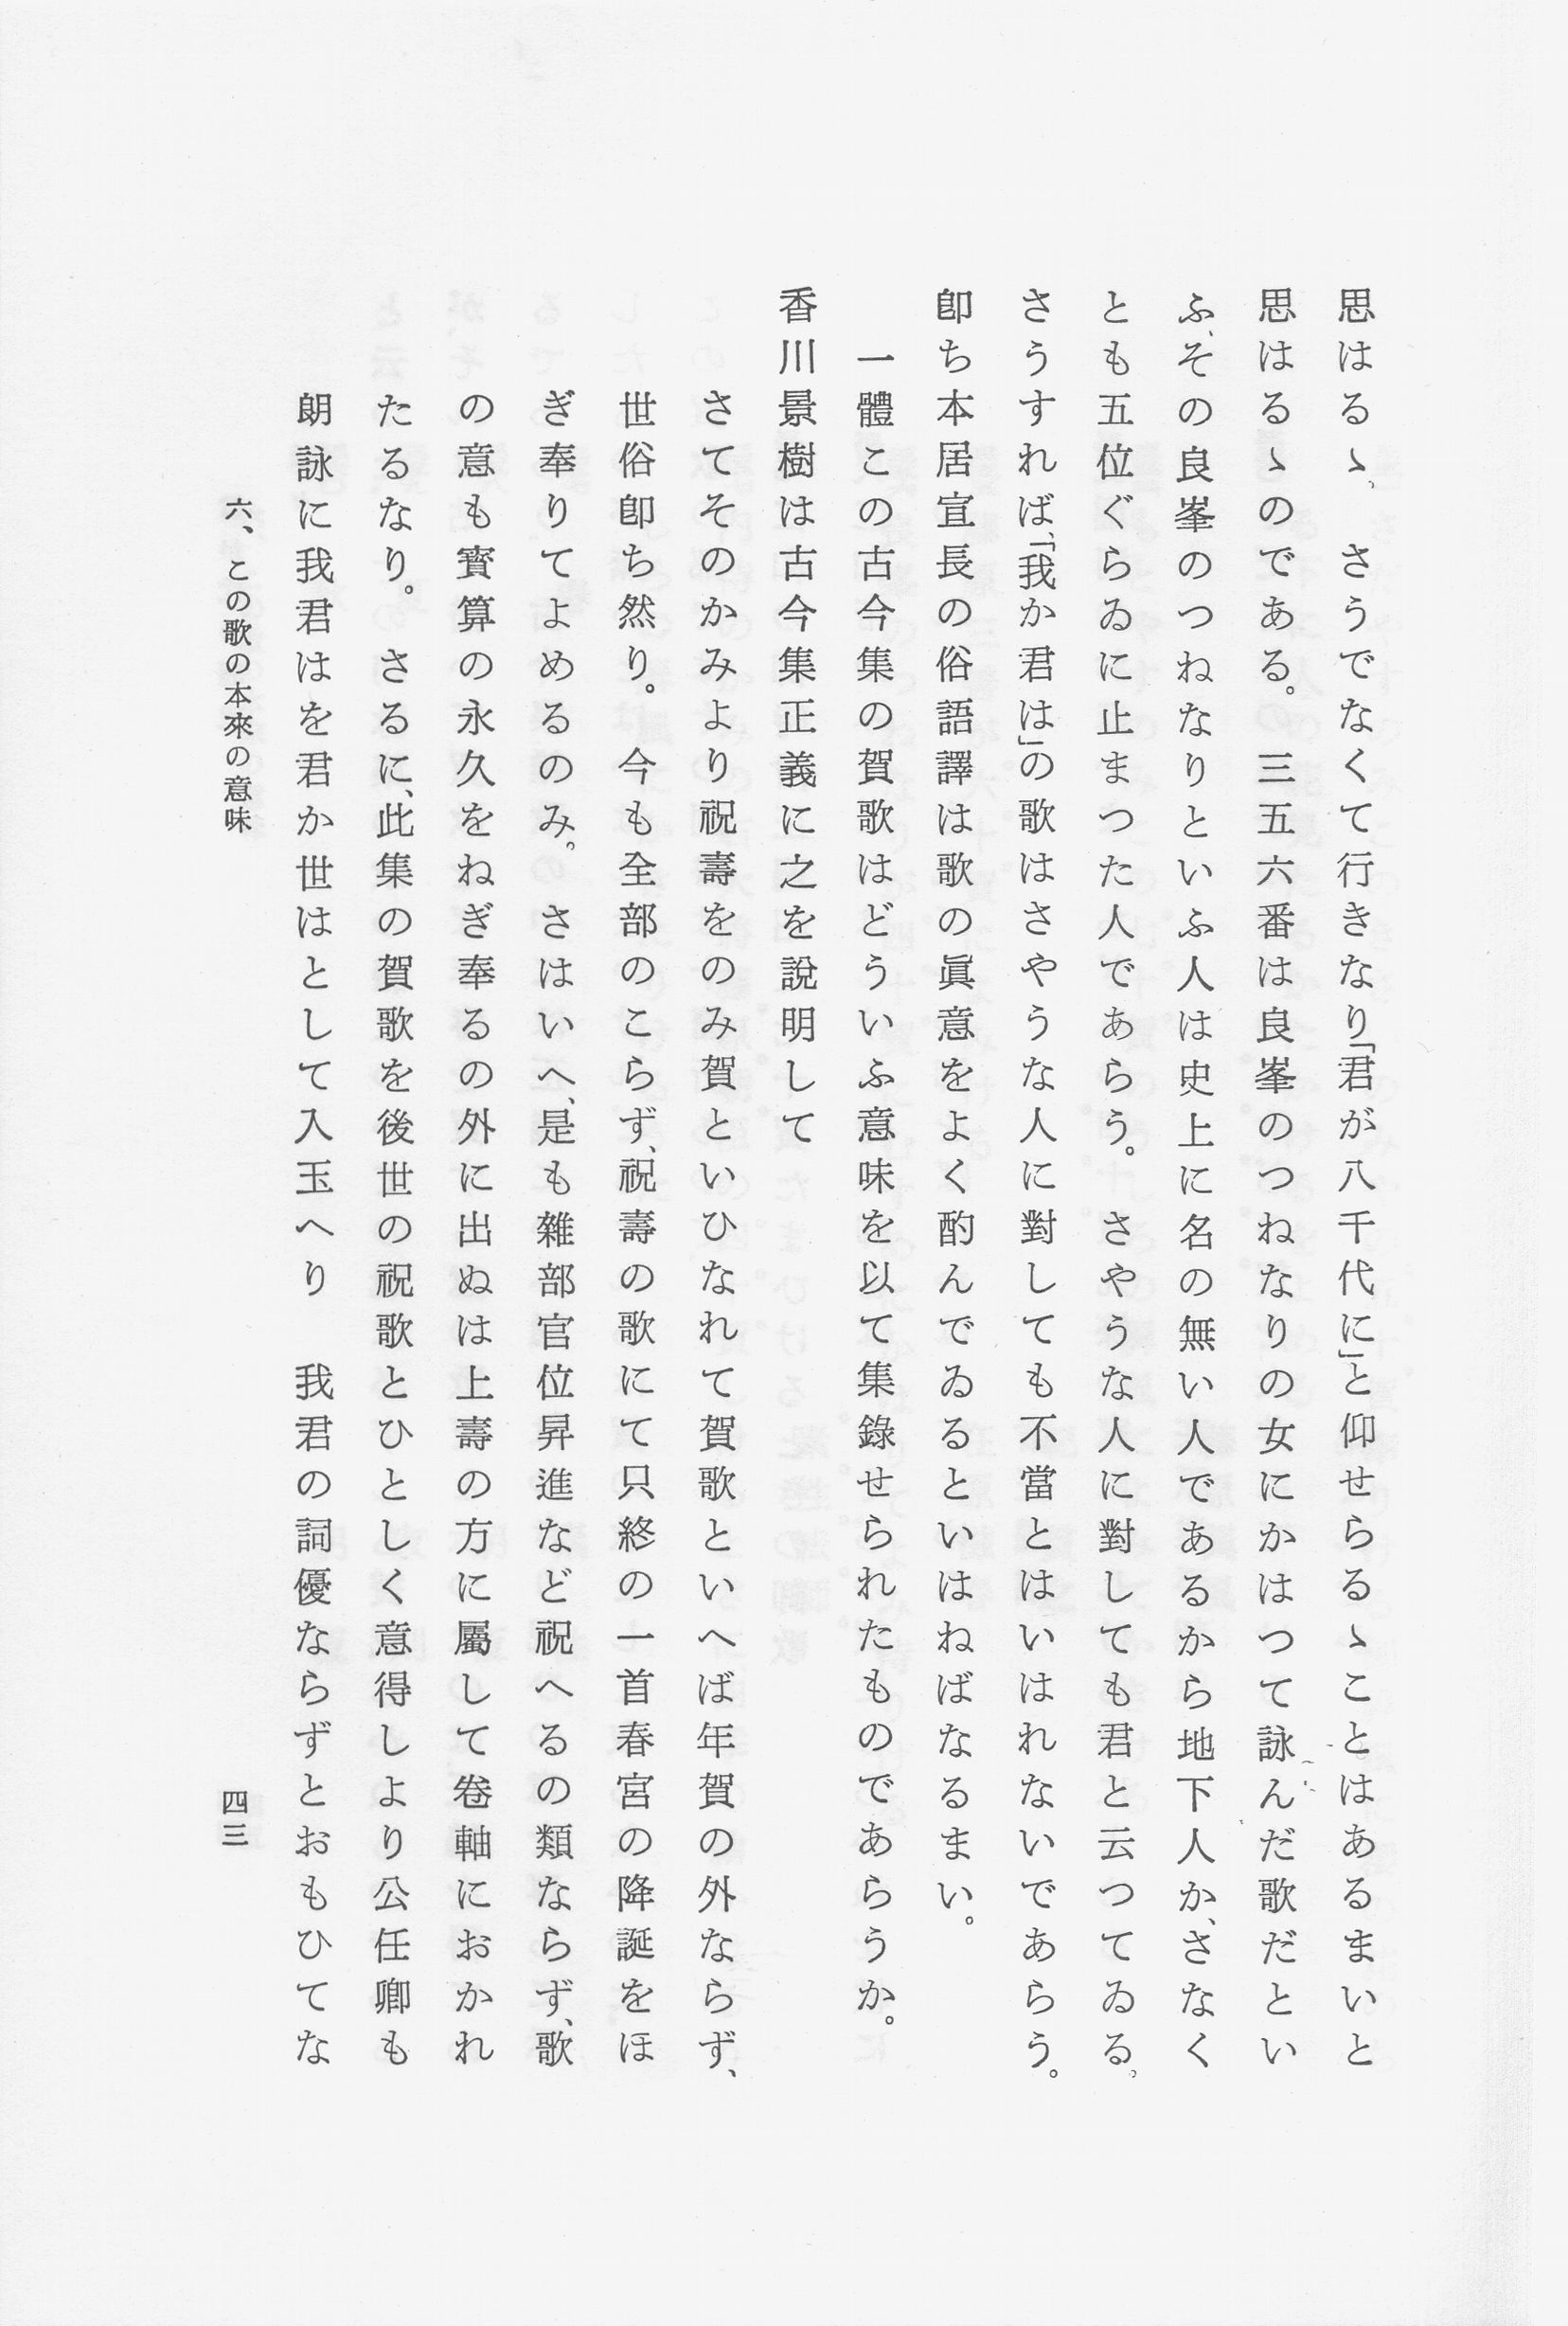 思はるゝ。　さうでなくて行きなり「君が八千代に」と仰せらるゝことはあるまいと
思はるゝのである。　三五六番は良峯のつねなりの女にかはつて詠んだ歌だとい
ふ、その良峯のつねなりといふ人は史上に名の無い人であるから地下人か、さなく
とも五位ぐらゐに止まつた人であらう。　さやうな人に對しても君と云つてゐる。
さうすれば、「我か君は」の歌はさやうな人に對しても不當とはいはれないであらう。
卽ち本居宣長の俗語譯は歌の眞意をよく酌んでゐるといはねばなるまい。
　一體この古今集の賀歌はどういふ意味を以て集錄せられたものであらうか。
香川景樹は古今集正義に之を說明して
さてそのかみより祝壽をのみ賀といひなれて賀歌といへば年賀の外ならず、
世俗卽ち然り。　今も全部のこらず、祝壽の歌にて只終の一首春宮の降誕をほ
ぎ奉りてよめるのみ。　さはいへ、是も雜部官位昇進など祝へるの類ならず、歌
の意も寶算の永久をねぎ奉るの外に出ぬは上壽の方に屬して卷軸におかれ
たるなり。　さるに、此集の賀歌を後世の祝歌とひとしく意得しより公任卿も
朗詠に我君はを君か世はとして入玉へり　我君の詞優ならずとおもひてな
六、この歌の本來の意味
四三